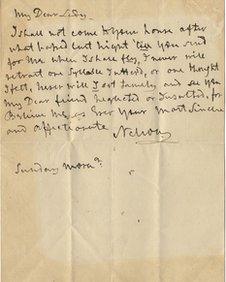 My Dear Lady
I shall not come to your house after
what passed last night till you send
for me when I shall fly, I never will
retract one Syllable I utterd, or one thought
I felt, never will I eat tamely and see you
My Dear friend Neglected or Insulted, for
Believe Me, ever Your Most Sincere
and affectionate Nelson
Sunday Morn.g